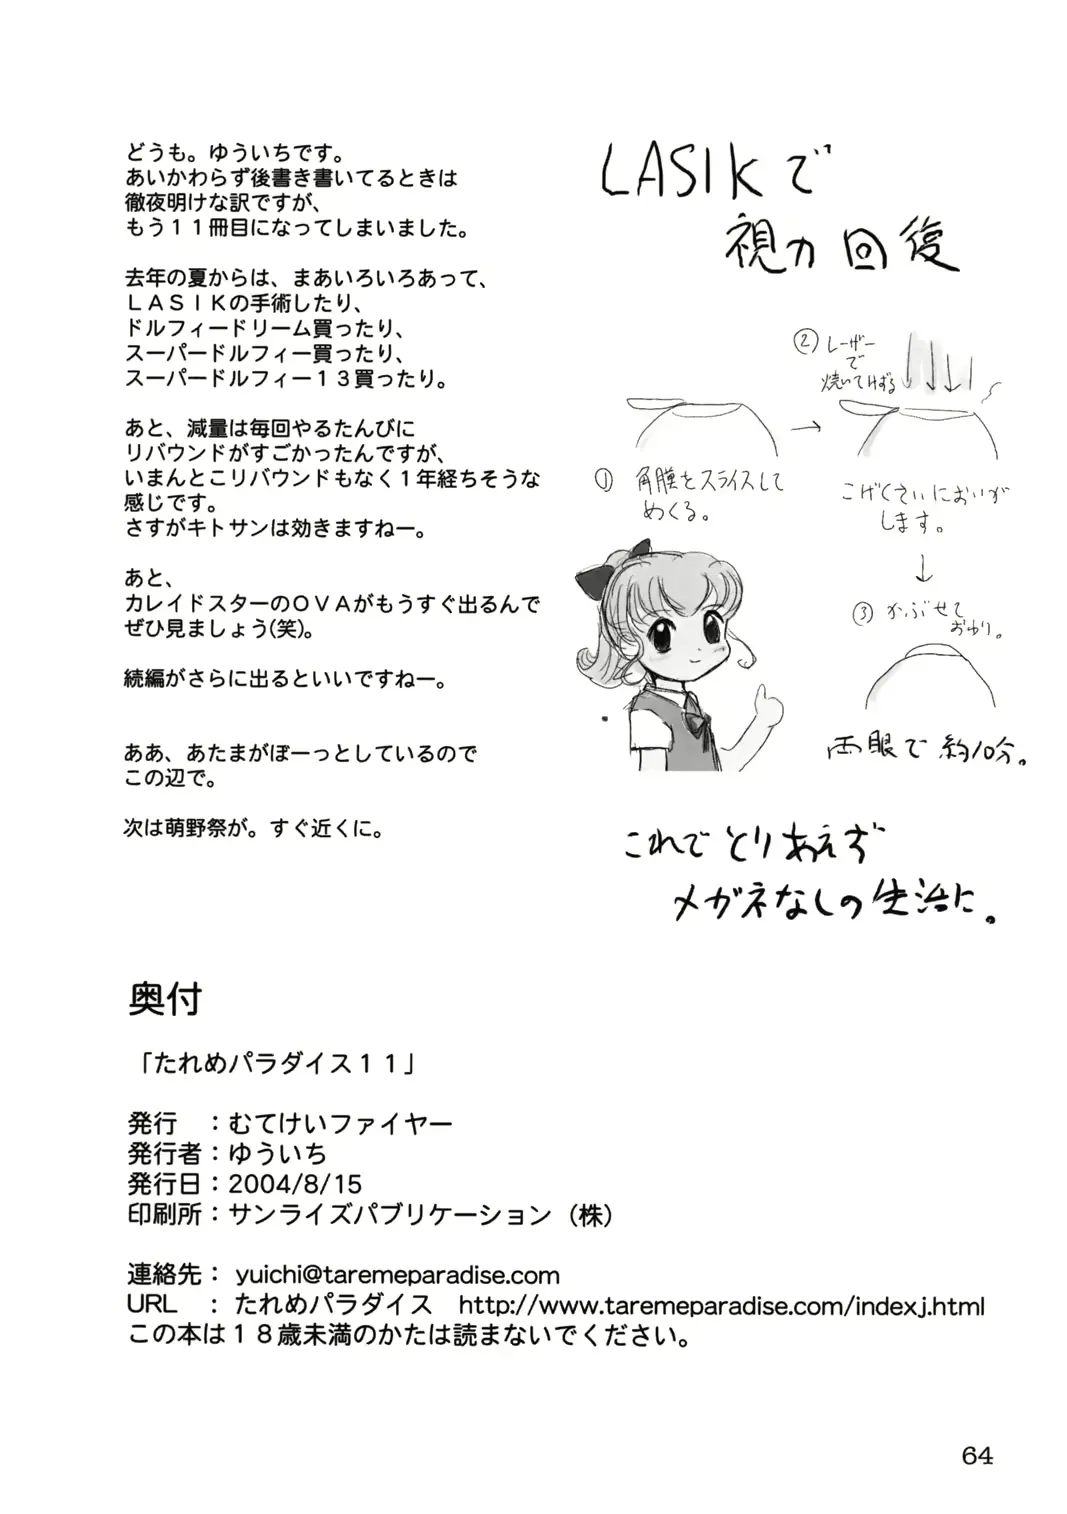 どうも。ゆういちです。
あいかわらず後書き書いてるときは
徹夜明けな訳ですが、
もう１１冊目になってしまいました。
去年の夏からは、まあいろいろあって、
ＬＡＳＩＫの手術したり、
ドルフィードリーム買ったり、
スーパードルフィー買ったり、
スーパードルフィー１３買ったり。
あと、減量は毎回やるたんびに
リバウンドがすごかったんですが、
いまんとこリバウンドもなく１年経ちそうな
感じです。
さすがキトサンは効きますねー。
あと、
カレイドスターのＯＶＡがもうすぐ出るんで
ぜひ見ましょう(笑)。
続編がさらに出るといいですねー。
ああ、あたまがぼーっとしているので
この辺で。
次は萌野祭が。すぐ近くに。
LASIKで
視力回復
① 角膜をスライスして
めくる。
② レーザー
で
焼いてけずる
こげくさいにおいが
します。
③ かぶせて
おわり。
両眼で約10分。
これでとりあえず
メガネなしの生活に。
奥付
「たれめパラダイス１１」
発行　：むてけいファイヤー
発行者：ゆういち
発行日：2004/8/15
印刷所：サンライズパブリケーション（株）
連絡先： yuichi@taremeparadise.com
URL　：たれめパラダイス　http://www.taremeparadise.com/indexj.html
この本は１８歳未満のかたは読まないでください。
64